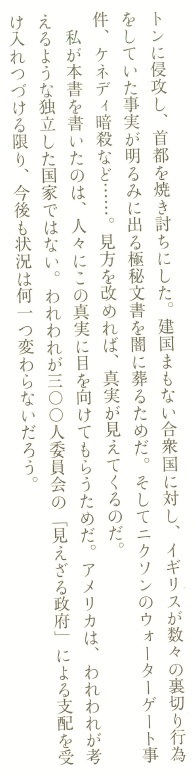 トンに侵攻し、首都を焼き討ちにした。建国まもない合衆国に対し、イギリスが数々の裏切り行為
をしていた事実が明るみに出る極秘文書を闇に葬るためだ。そしてニクソンのウォーターゲート事
件、ケネディ暗殺など……。見方を改めれば、真実が見えてくるのだ。
私が本書を書いたのは、人々にこの真実に目を向けてもらうためだ。アメリカは、われわれが考
えるような独立した国家ではない。われわれが三〇〇人委員会の「見えざる政府」による支配を受
け入れつづける限り、今後も状況は何一つ変わらないだろう。